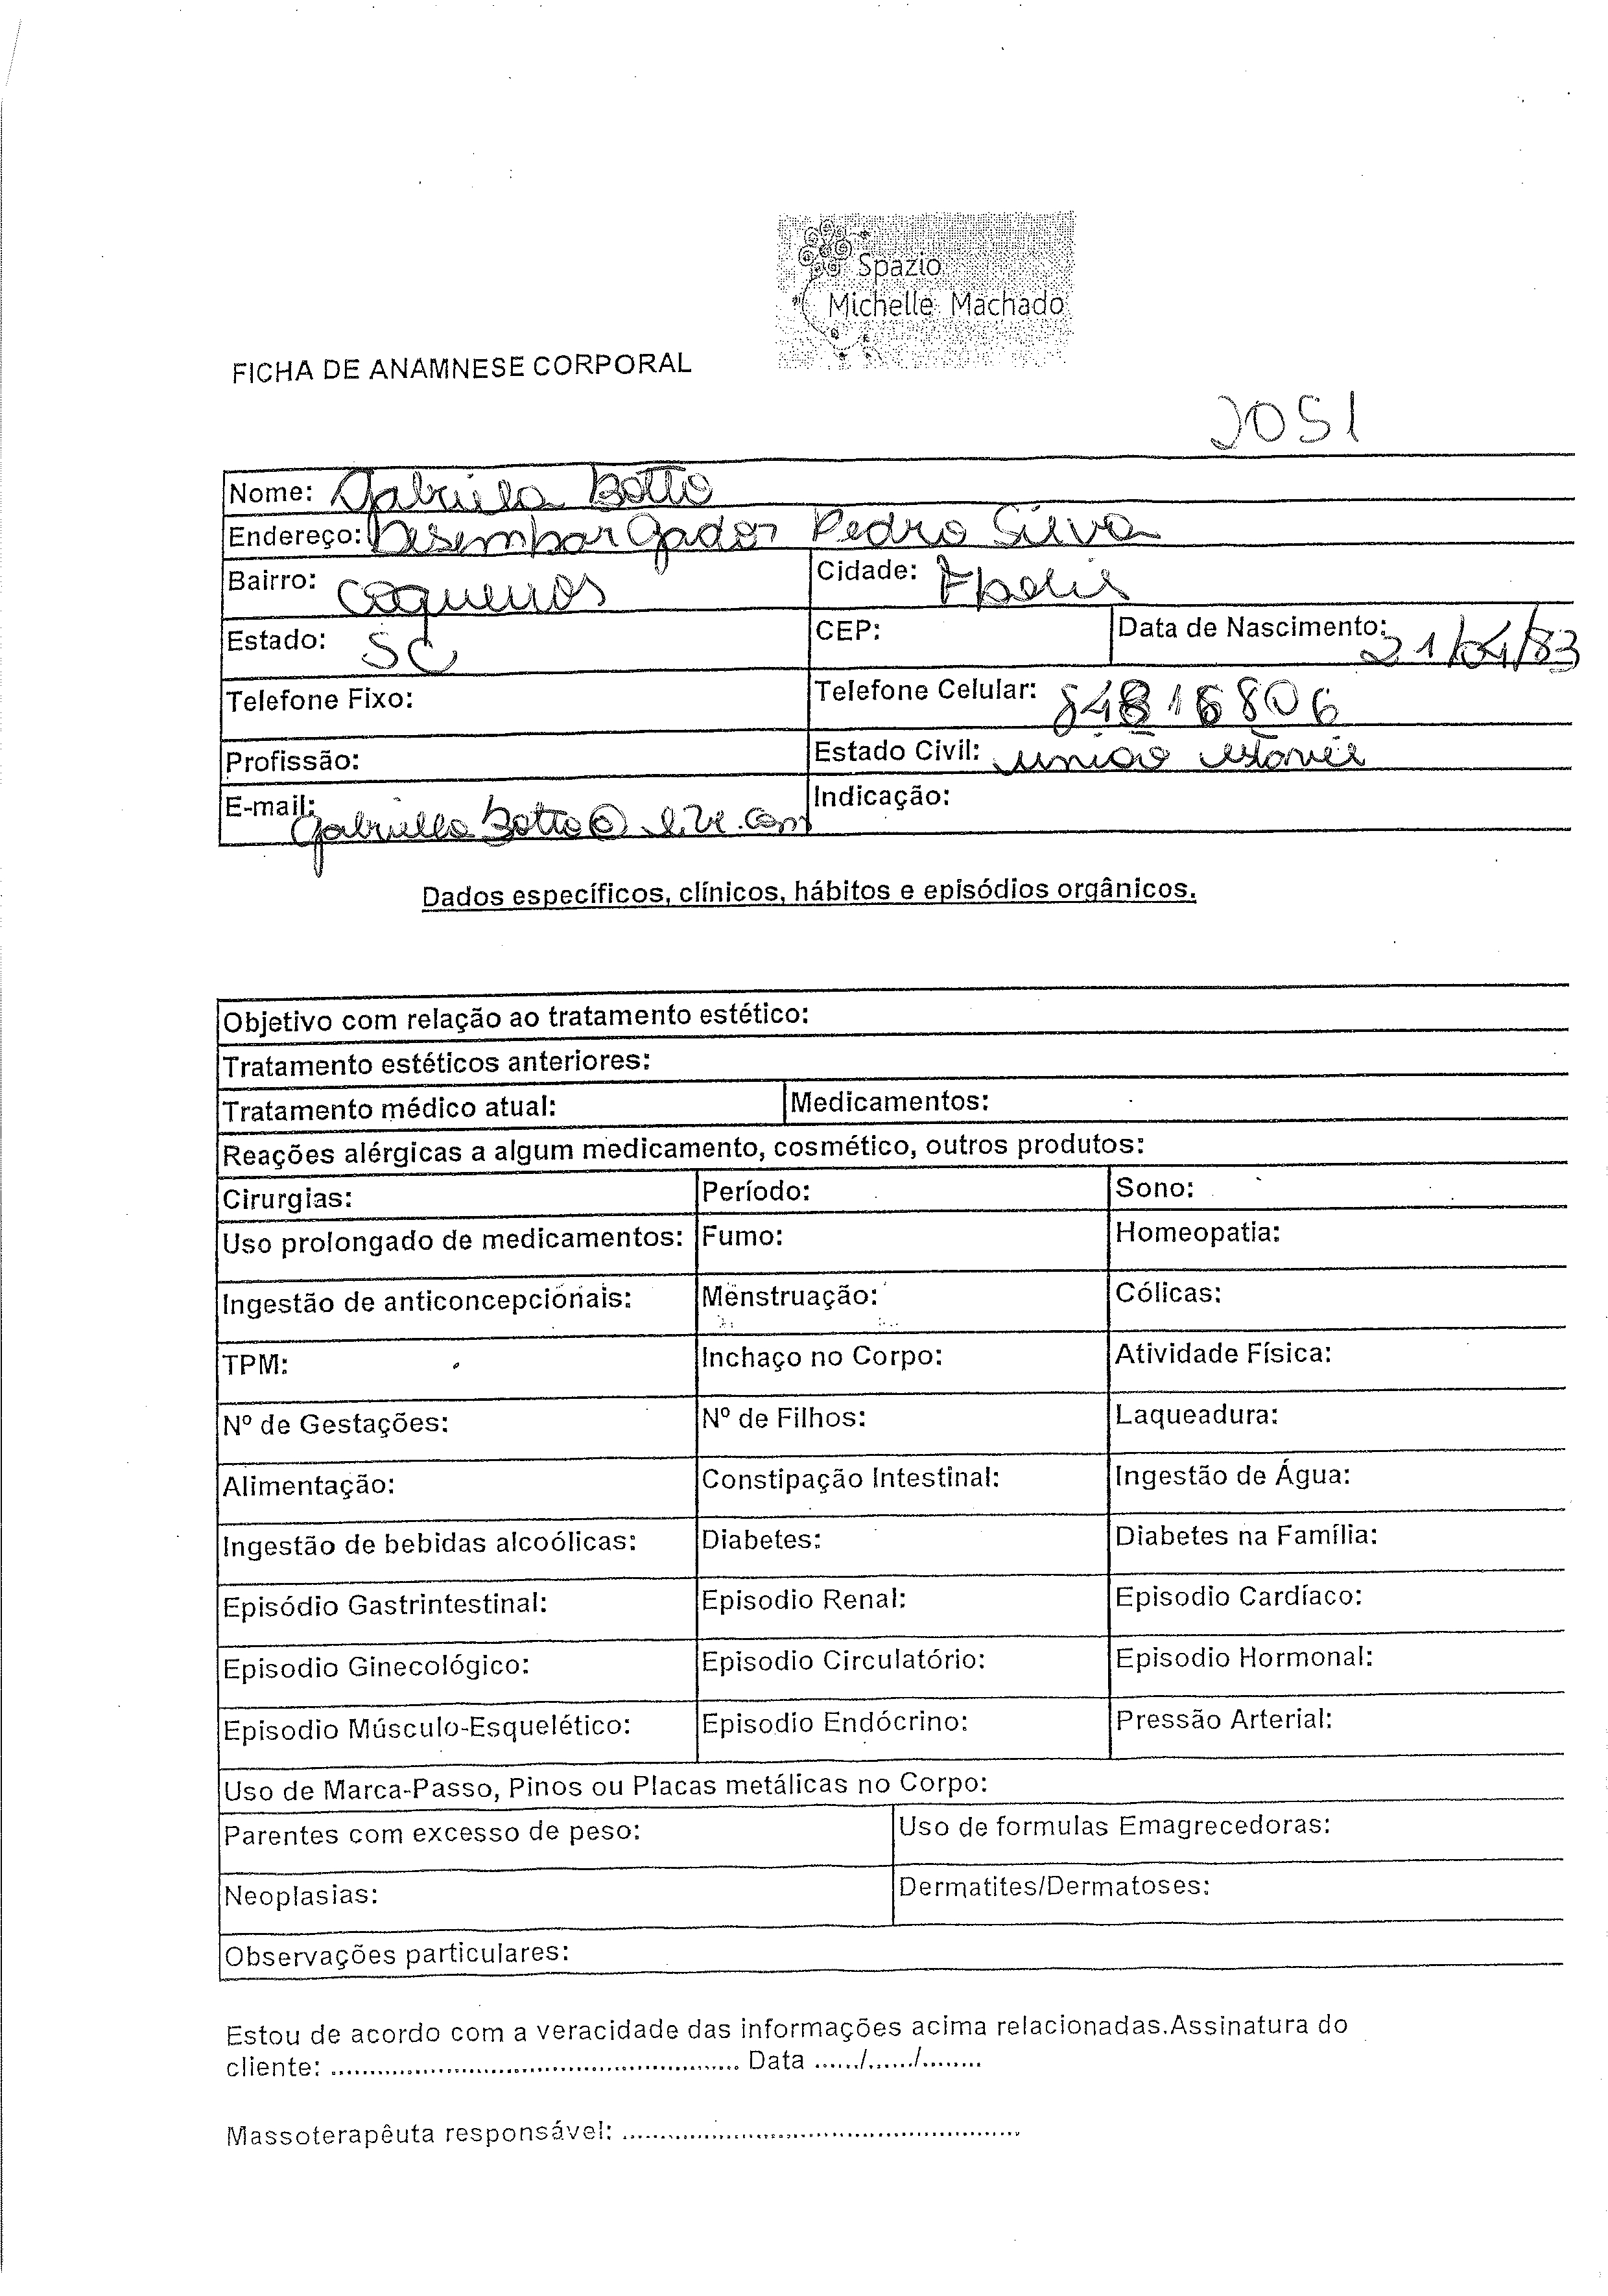 Spazio
Michelle Machado
FICHA DE ANAMNESE CORPORAL
JOSI
Nome: Gabriela Botto
Endereço: Desembargador Pedro Silva
Bairro: Coqueiros Cidade: Fpolis
Estado: SC CEP: Data de Nascimento: 21/04/83
Telefone Fixo: Telefone Celular: 84816806
Profissão: Estado Civil: união estável
E-mail: Indicação:
Dados específicos, clínicos, hábitos e episódios orgânicos.
Objetivo com relação ao tratamento estético:
Tratamento estéticos anteriores:
Tratamento médico atual: Medicamentos:
Reações alérgicas a algum medicamento, cosmético, outros produtos:
Cirurgias: Período: Sono:
Uso prolongado de medicamentos: Fumo: Homeopatia:
Ingestão de anticoncepcionais: Menstruação: Cólicas:
TPM: Inchaço no Corpo: Atividade Física:
Nº de Gestações: Nº de Filhos: Laqueadura:
Alimentação: Constipação Intestinal: Ingestão de Água:
Ingestão de bebidas alcoólicas: Diabetes: Diabetes na Família:
Episódio Gastrintestinal: Episodio Renal: Episodio Cardíaco:
Episodio Ginecológico: Episodio Circulatório: Episodio Hormonal:
Episodio Músculo-Esquelético: Episodio Endócrino: Pressão Arterial:
Uso de Marca-Passo, Pinos ou Placas metálicas no Corpo:
Parentes com excesso de peso: Uso de formulas Emagrecedoras:
Neoplasias: Dermatites/Dermatoses:
Observações particulares:
Estou de acordo com a veracidade das informações acima relacionadas.Assinatura do
cliente: .................................................. Data ....../....../........
Massoterapêuta responsável: ..................................................